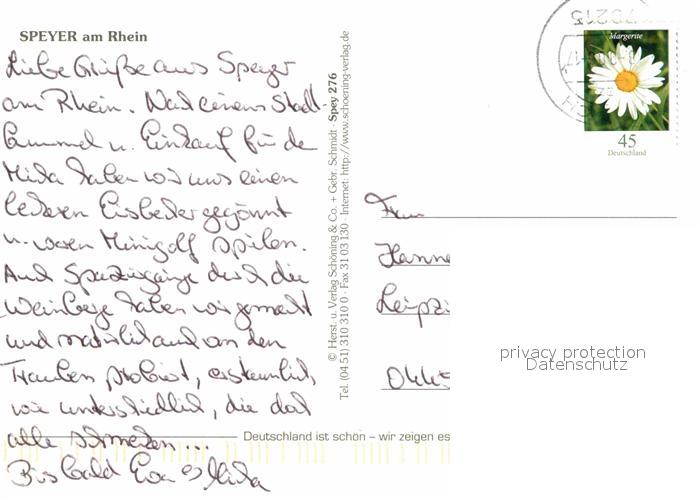 SPEYER am Rhein
Liebe Grüße aus Speyer
am Rhein. Nach einem Stadt-
bummel u. Einkauf für die
Mila haben wir uns einen
leckeren Eisbecher gegönnt
u. waren Minigolf spielen.
Auch Spaziergänge durch die
Weinberge haben wir gemacht
und natürlich auch an den
Trauben probiert, erstaunlich,
wie unterschiedlich, die doch
alle schmecken...
Bis bald Eva & Mila
© Herst. u. Verlag Schöning & Co. + Gebr. Schmidt · Spey 276
Tel. (04 51) 310 310 0 · Fax 31 03 130 · Internet: http://www.schoening-verlag.de
Margerite
45
Deutschland
Frau
Hanne
Leipzi
privacy protection
Datenschutz
Deutschland ist schön – wir zeigen es